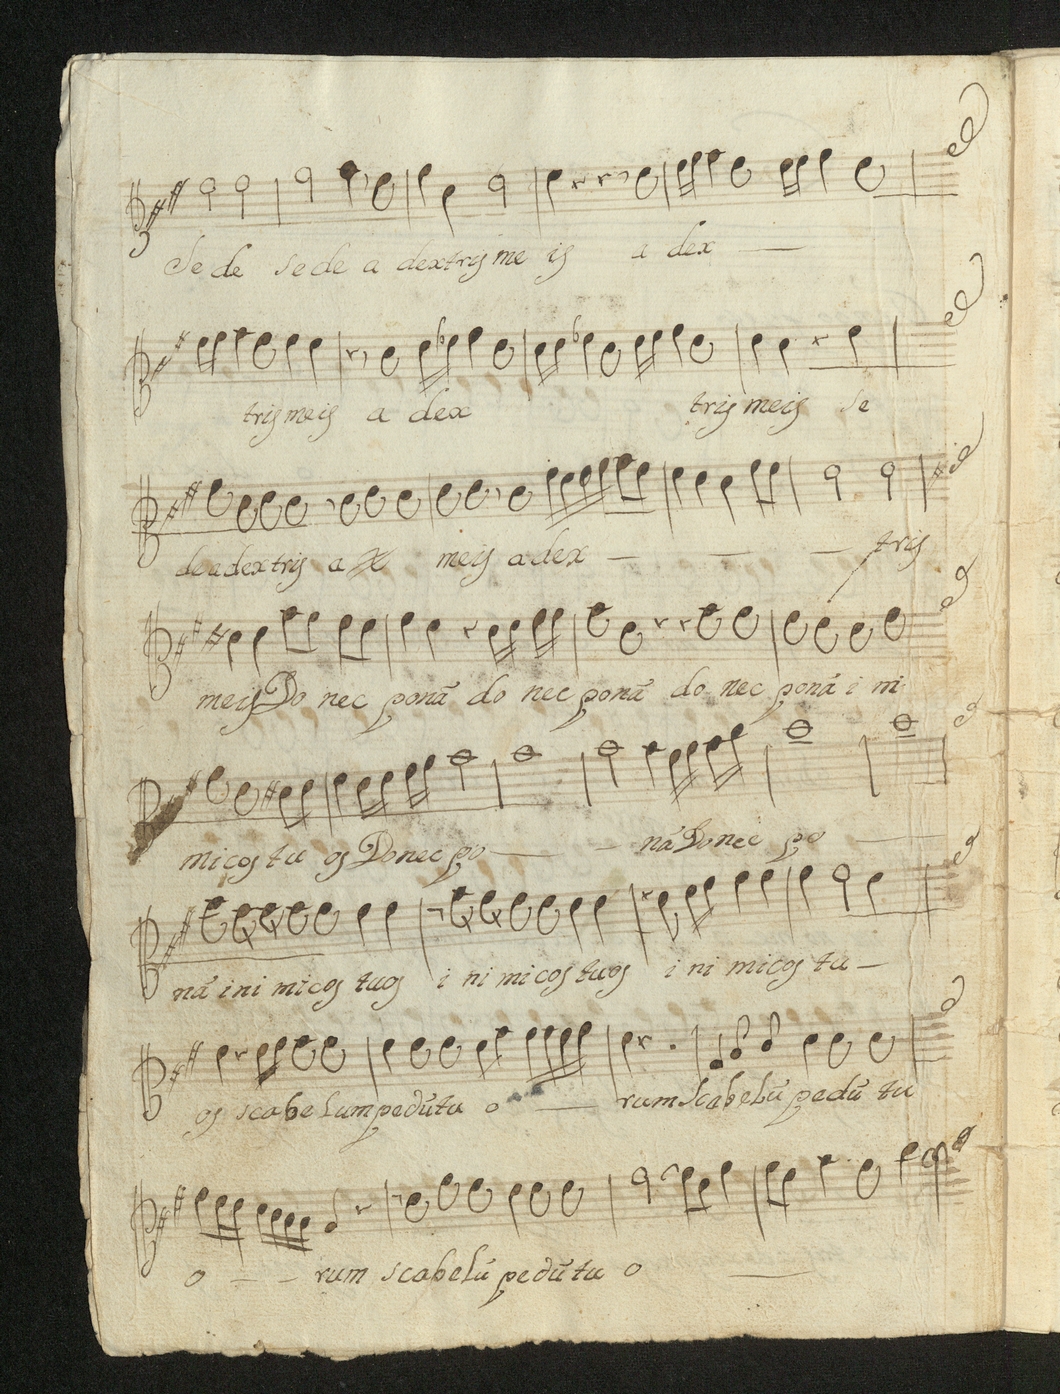 Sede sede a dextris me is a dex
tris meis a dex tris meis se
de a dextris a meis a dex tris
meis Do nec ponã do nec ponã do nec ponã i ni
micos tu os Donec po nã Donec po
nã ini micos tuos i ni micos tuos i ni micos tu
os scabelum pedũ tu o rum scabelũ pedũ tu
o rum scabelũ pedũ tu o